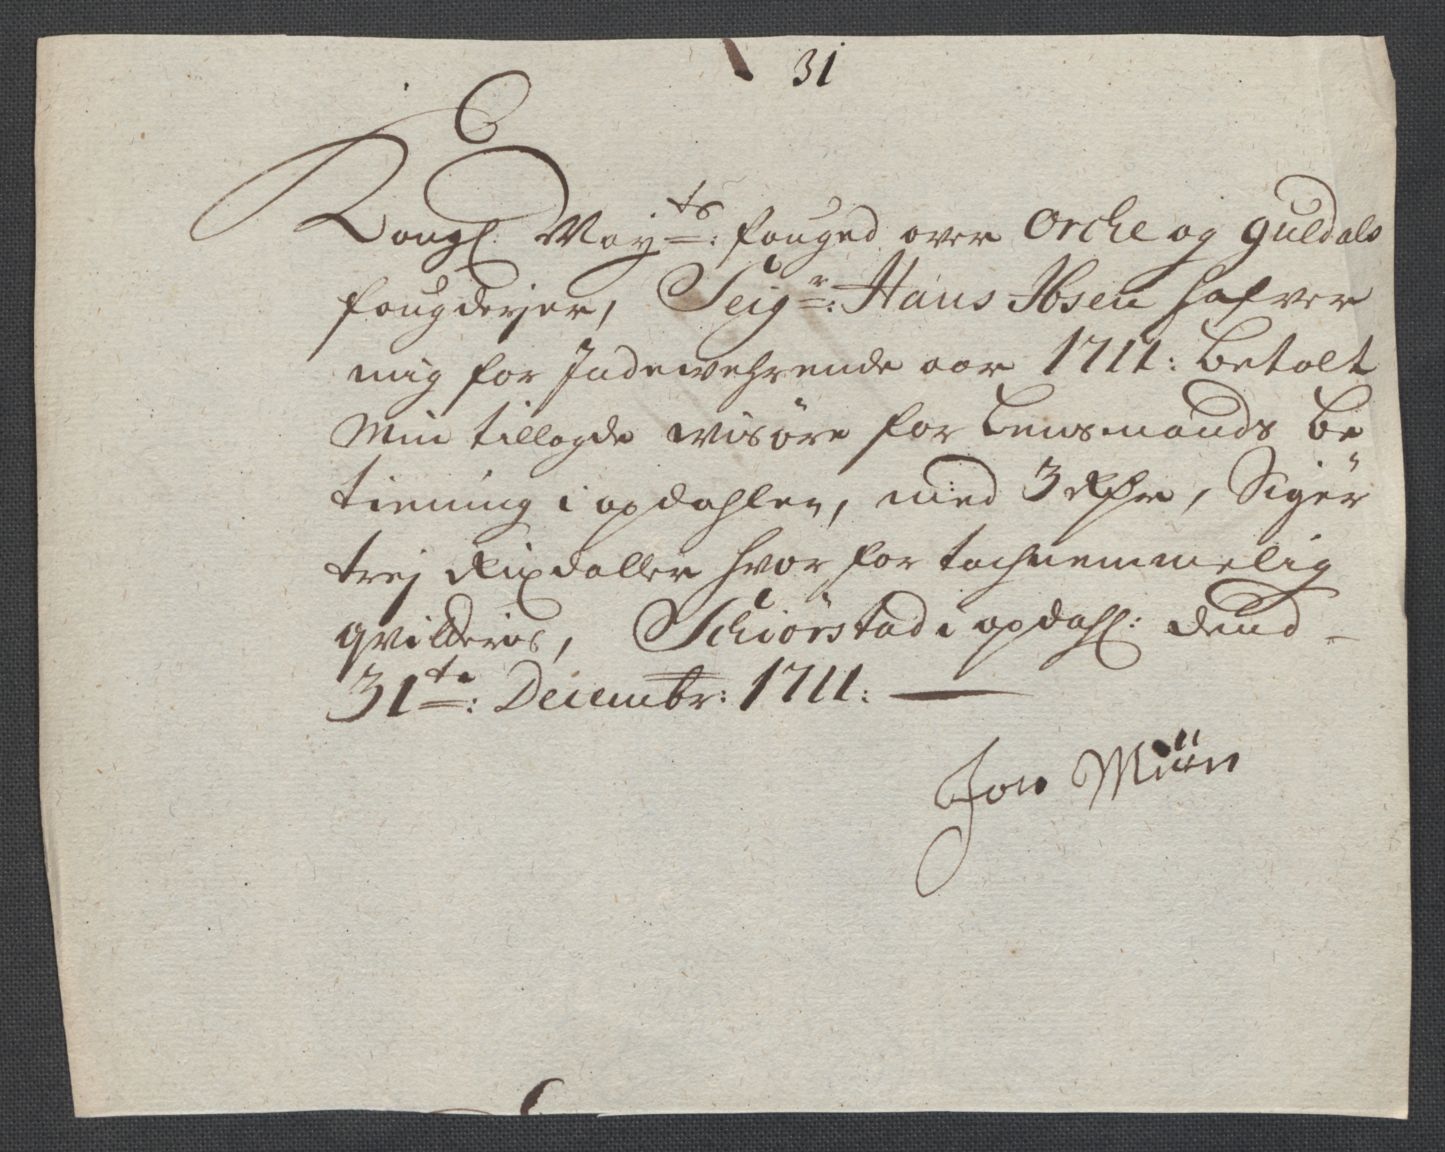 31
Kongl: May^ts: fouged over Orche og Guldals
fougderyer, Seig^r: Hans Ibsen hafver
mig for Indewehrende aar 1711: betalt
Min tillagde wisøre for Lensmands be
tiening i opdahlen, med 3 Rdr, Siger
trej Rixdaller hvor for tachnemmelig
qvitteris, Schiørstad i opdahl: dend
31^te: Decembr: 1711:
Jon